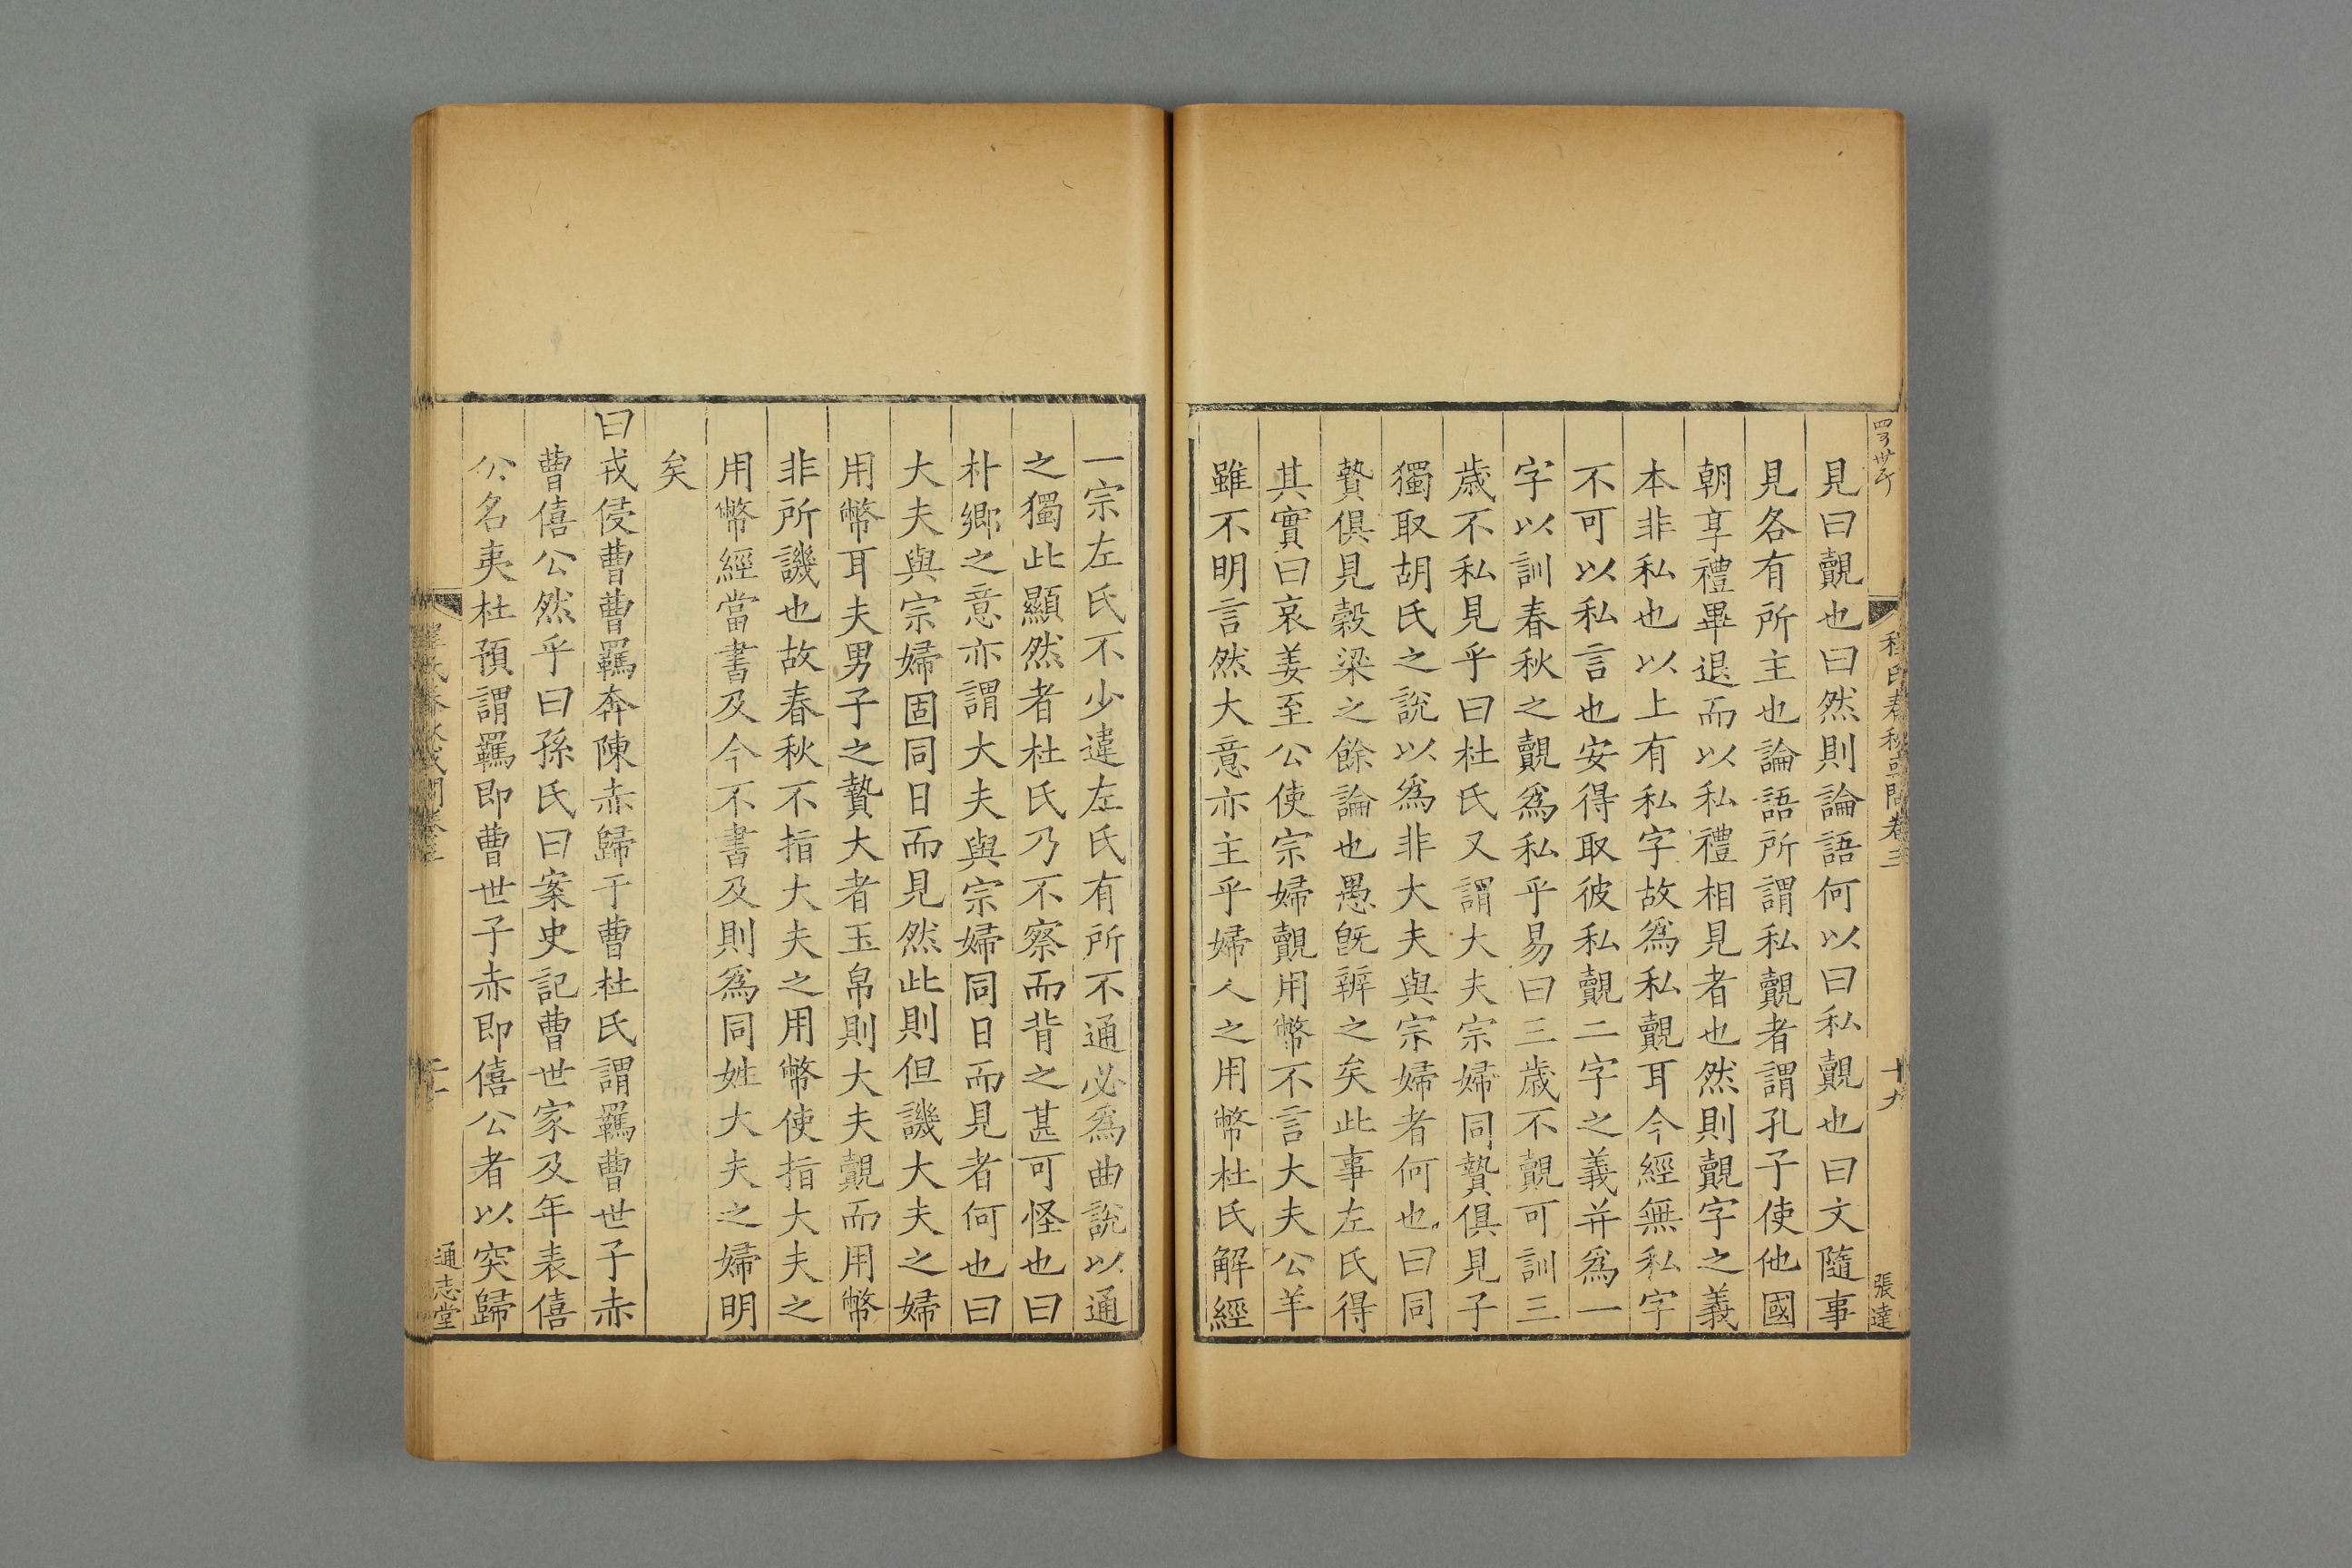 見曰覿也曰然則論語何以曰私覿也曰文隨事
見各有所主也論語所謂私覿者謂孔子使他國
朝享禮畢退而以私禮相見者也然則覿字之義
本非私也以上有私字故爲私覿耳今經無私字
不可以私言也安得取彼私覿二字之義并爲一
字以訓春秋之覿爲私乎易曰三歲不覿可訓三
歲不私見乎曰杜氏又謂大夫宗婦同贄俱見子
獨取胡氏之說以爲非大夫與宗婦者何也曰同
贄俱見穀梁之餘論也愚旣辨之矣此事左氏得
其實曰哀姜至公使宗婦覿用幣不言大夫公羊
雖不明言然大意亦主乎婦人之用幣杜氏解經
十九
張達
一宗左氏不少違左氏有所不通必爲曲說以通
之獨此顯然者杜氏乃不察而背之甚可怪也曰
朴鄉之意亦謂大夫與宗婦同日而見者何也曰
大夫與宗婦固同日而見然此則但譏大夫之婦
用幣耳夫男子之贄大者玉帛則大夫覿而用幣
非所譏也故春秋不指大夫之用幣使指大夫之
用幣經當書及今不書及則爲同姓大夫之婦明
矣
曰戎侵曹曹羈奔陳赤歸于曹杜氏謂羈曹世子赤
曹僖公然乎曰孫氏曰案史記曹世家及年表僖
公名夷杜預謂羈即曹世子赤即僖公者以突歸
通志堂